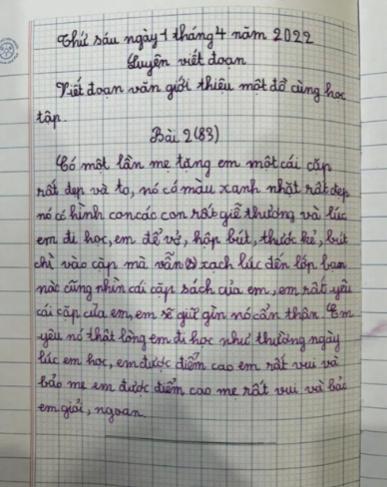 Thứ sáu ngày 1 tháng 4 năm 2022
Luyện viết đoạn
Viết đoạn văn giới thiệu một đồ cùng học
tập.
Bài 2 (83)
Có một lần mẹ tặng em một cái cặp
rất đẹp và to, nó có màu xanh nhặt rất đẹp
nó có hình con các con rất giễ thương và lúc
em đi học, em để vở, hộp bít, thước kẻ, bút
chì vào cặp mà vẫn xach lúc đến lớp bạn
nào cũng nhìn cái cặp sách của em, em rất yêu
cái cặp của em, em sẽ giữ gìn nó cẩn thận. Em
yêu nó thật lòng em đi học như thường ngày
lúc em học, em được điểm cao em rất vui và
bảo mẹ em được điểm cao mẹ rất vui và bảo
em giỏi, ngoan.